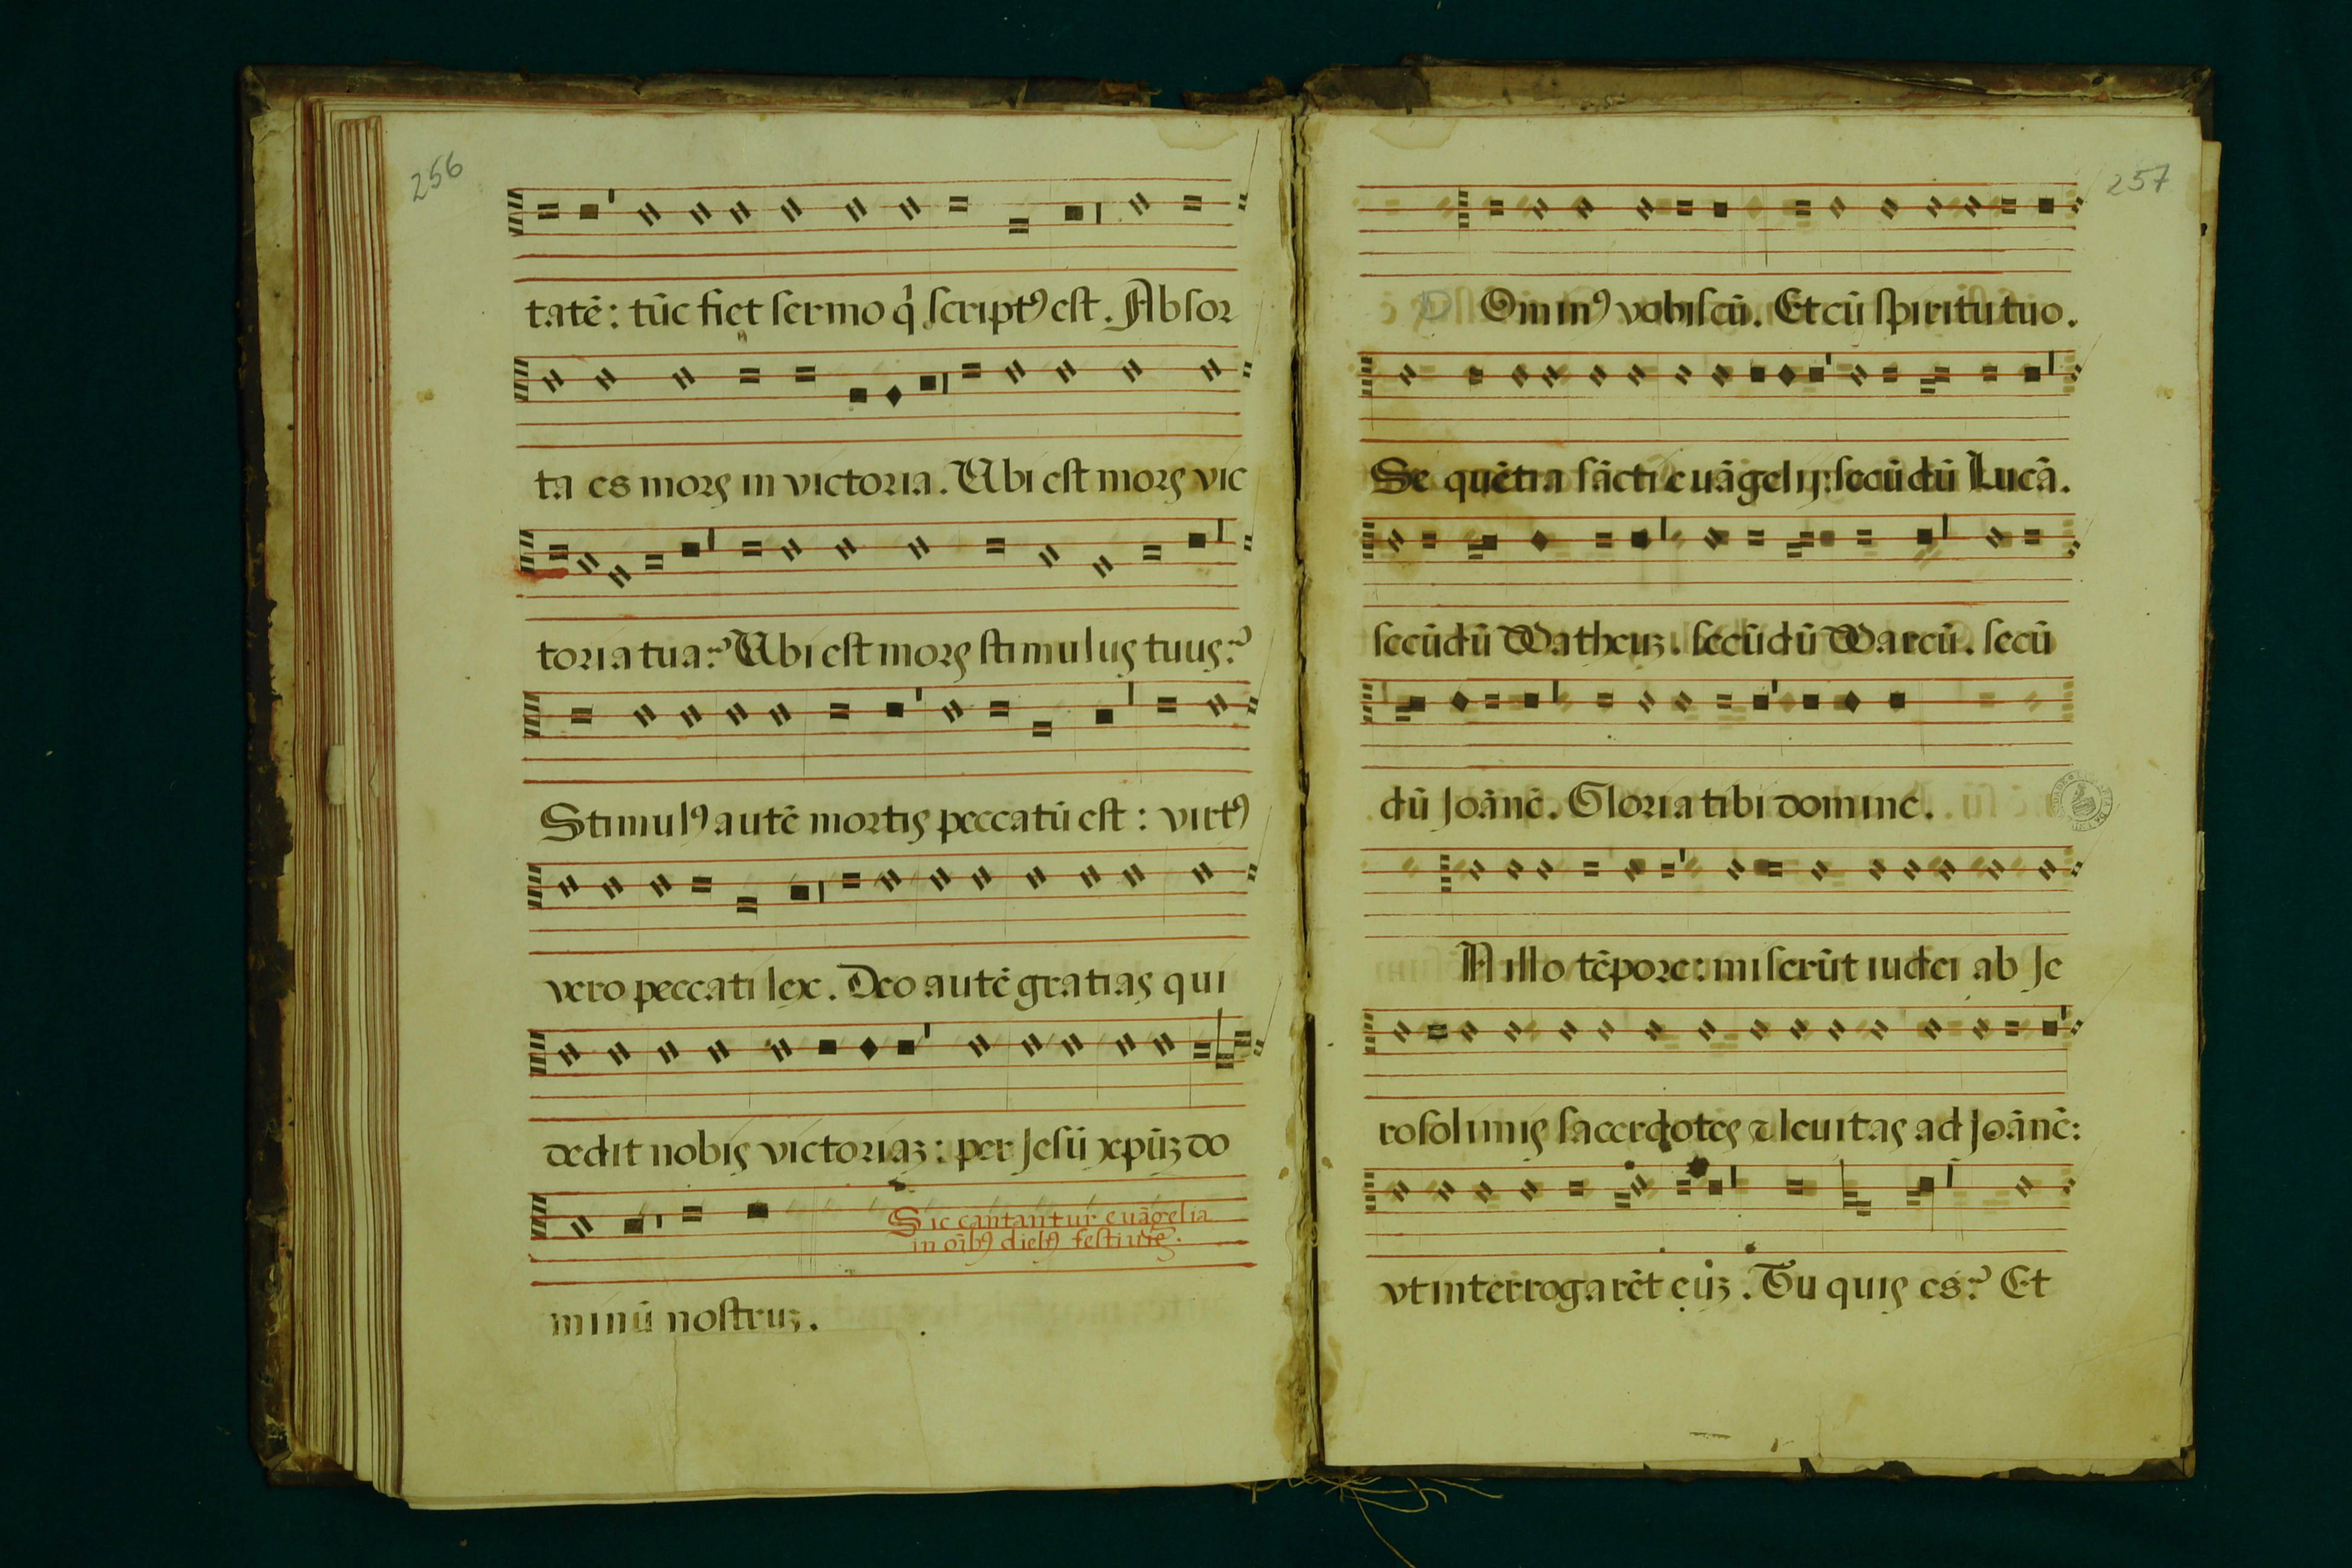 256
tatē: tūc fiet sermo q̇ script9 est. Absor
ta es mors in victoria. Ubi est mors vic
toria tua? Ubi est mors stimulus tuus?
Stimul9 autē mortis peccatū est: virt9
vero peccati lex. Deo autē gratias qui
dedit nobis victoriaꝫ: per Jesū xpūꝫ do
Sic cantantur euāgelia
in oīb9 dieb9 festiuis.
minū nostruꝫ.
257
Omin9 vobiscū. Et cū spiritu tuo.
Se quētia sācti euāgelij: secūdū Lucā.
secūdū Matheuꝫ. secūdū Marcū. secū
dū Joānē. Gloria tibi domine.
N illo tēpore: miserūt iudei ab Je
rosolimis sacerdotes ⁊ leuitas ad Joānē:
vt interrogarēt eūꝫ. Tu quis es? Et